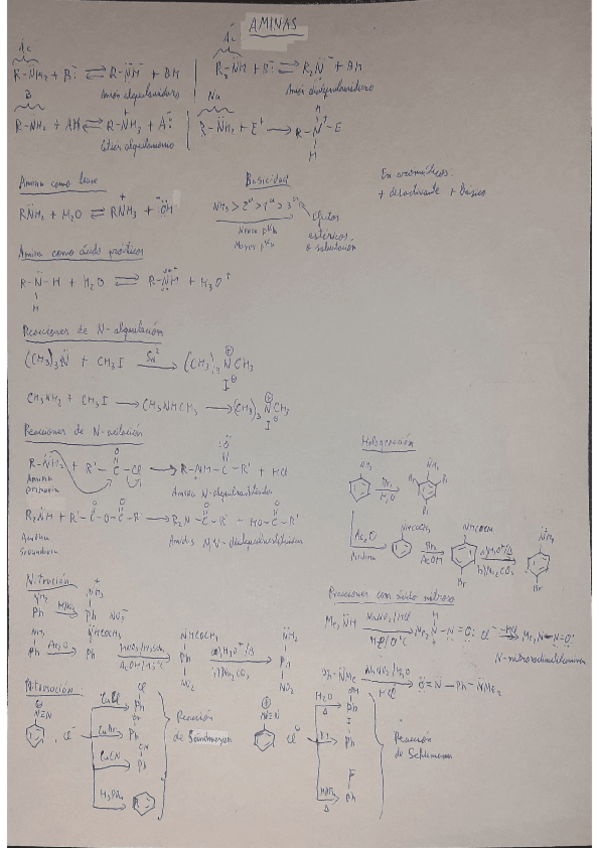 AMINAS
Ác
R-N̈H₂ + B:⁻ ⇌ R-N̈H⁻ + BH
Anión alquilamiduro
Ác
R₂N̈H + B:⁻ ⇌ R₂N̈:⁻ + BH
Anión dialquilamiduro
B
R-N̈H₂ + AH ⇌ R-NH₃⁺ + A:⁻
Catión alquilamonio
Nu
R-N̈H₂ + E⁺ → R-N⁺-E
H
H
Amina como base
RN̈H₂ + H₂O ⇌ RNH₃⁺ + ⁻ÖH
Basicidad
NH₃ > 2ª > 1ª > 3ª
Menor pKb
Mayor pKa
efectos
estéricos
o solvatación
En aromáticos:
+ desactivante + básica
Amina como ácido próticos
R-N̈-H + H₂O ⇌ R-N̈H⁻ + H₃O⁺
H
Reacciones de N-alquilación
(CH₃)₃N̈ + CH₃I SN2 → (CH₃)₃N⊕CH₃
I⊖
CH₃NH₂ + CH₃I → CH₃NHCH₃ → (CH₃)₃N⊕CH₃
I⊖
Reacciones de N-acilación
R-N̈H₂ + R'-C-Cl → R-NH-C-R' + HCl
Amina
primaria
Amida N-alquilsustituida
R₂N̈H + R'-C-O-C-R' → R₂N-C-R' + HO-C-R'
Amina
Secundaria
Amidas N,N-dialquilsustituidas
Halogenación
NH₂
Br₂
H₂O
NH₂
Br
Br
Br
Ac₂O
Piridina
NHCOCH₃
Br₂
AcOH
NHCOCH₃
Br
a) H₃O⁺/Δ
b) Na₂CO₃
NH₂
Br
Nitración
NH₂
Ph
HNO₃
NH₃
Ph
NO₃⁻
NH₂
Ph
Ac₂O
NHCOCH₃
Ph
HNO₃/H₂SO₄
AcOH/15°C
NHCOCH₃
Ph
NO₂
a) H₃O⁺/Δ
b) Na₂CO₃
NH₂
Ph
NO₂
Reacciones con ácido nitroso
Me₂N̈H NaNO₂/HCl → Me₂N-N=Ö: Cl⁻ → Me₂N-N=O:
H₂O/0°C
N-nitrosodimetilamina
Ph-N̈Me₂ NaNO₂/H₂O → Ö=N-Ph-N̈Me₂
HCl
N≡N
Cl⁻
CuCl
Cl
Ph
CuBr
Br
Ph
CuCN
CN
Ph
H₃PO₂
Reacción
de Sandmeyer
N≡N
Cl⊖
H₂O
Δ
OH
Ph
I
Ph
HBF₄
Δ
F
Ph
Reacción
de Schiemann